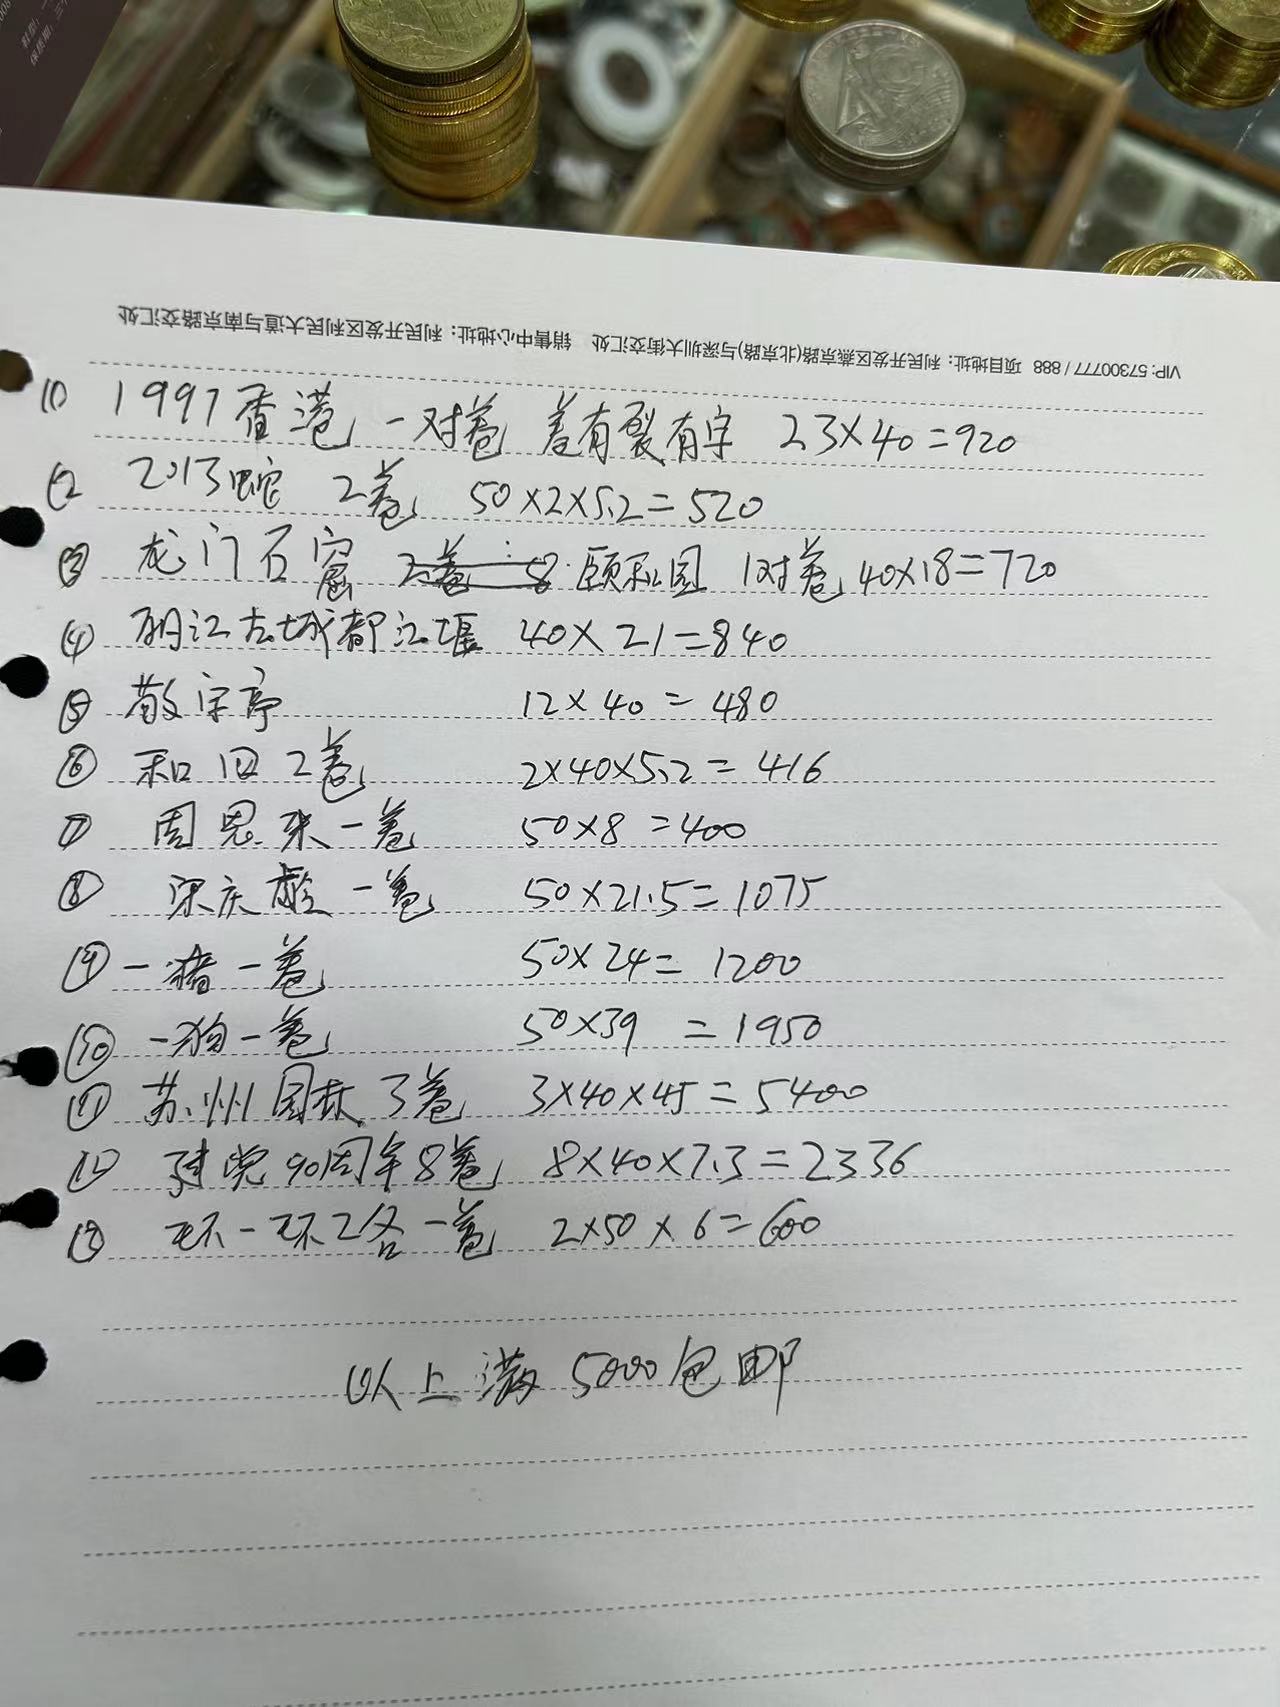 VIP: 57300777 / 888 项目地址: 利民开发区燕京路(北京路)与深圳大街交汇处 销售中心地址: 利民开发区利民大道与南京路交汇处
① 1997香港一对卷 差有裂有字 23×40=920
② 2013蛇 2卷 50×2×5.2=520
③ 龙门石窟 颐和园 1对卷 40×18=720
④ 丽江古城都江堰 40×21=840
⑤ 散字亭 12×40=480
⑥ 和旧2卷 2×40×5.2=416
⑦ 周恩来一卷 50×8=400
⑧ 宋庆龄一卷 50×21.5=1075
⑨ 一猪一卷 50×24=1200
⑩ 一狗一卷 50×39=1950
⑪ 苏州园林3卷 3×40×45=5400
⑫ 建党90周年8卷 8×40×7.3=2336
⑬ 环一环2各一卷 2×50×6=600
以上满5000包邮